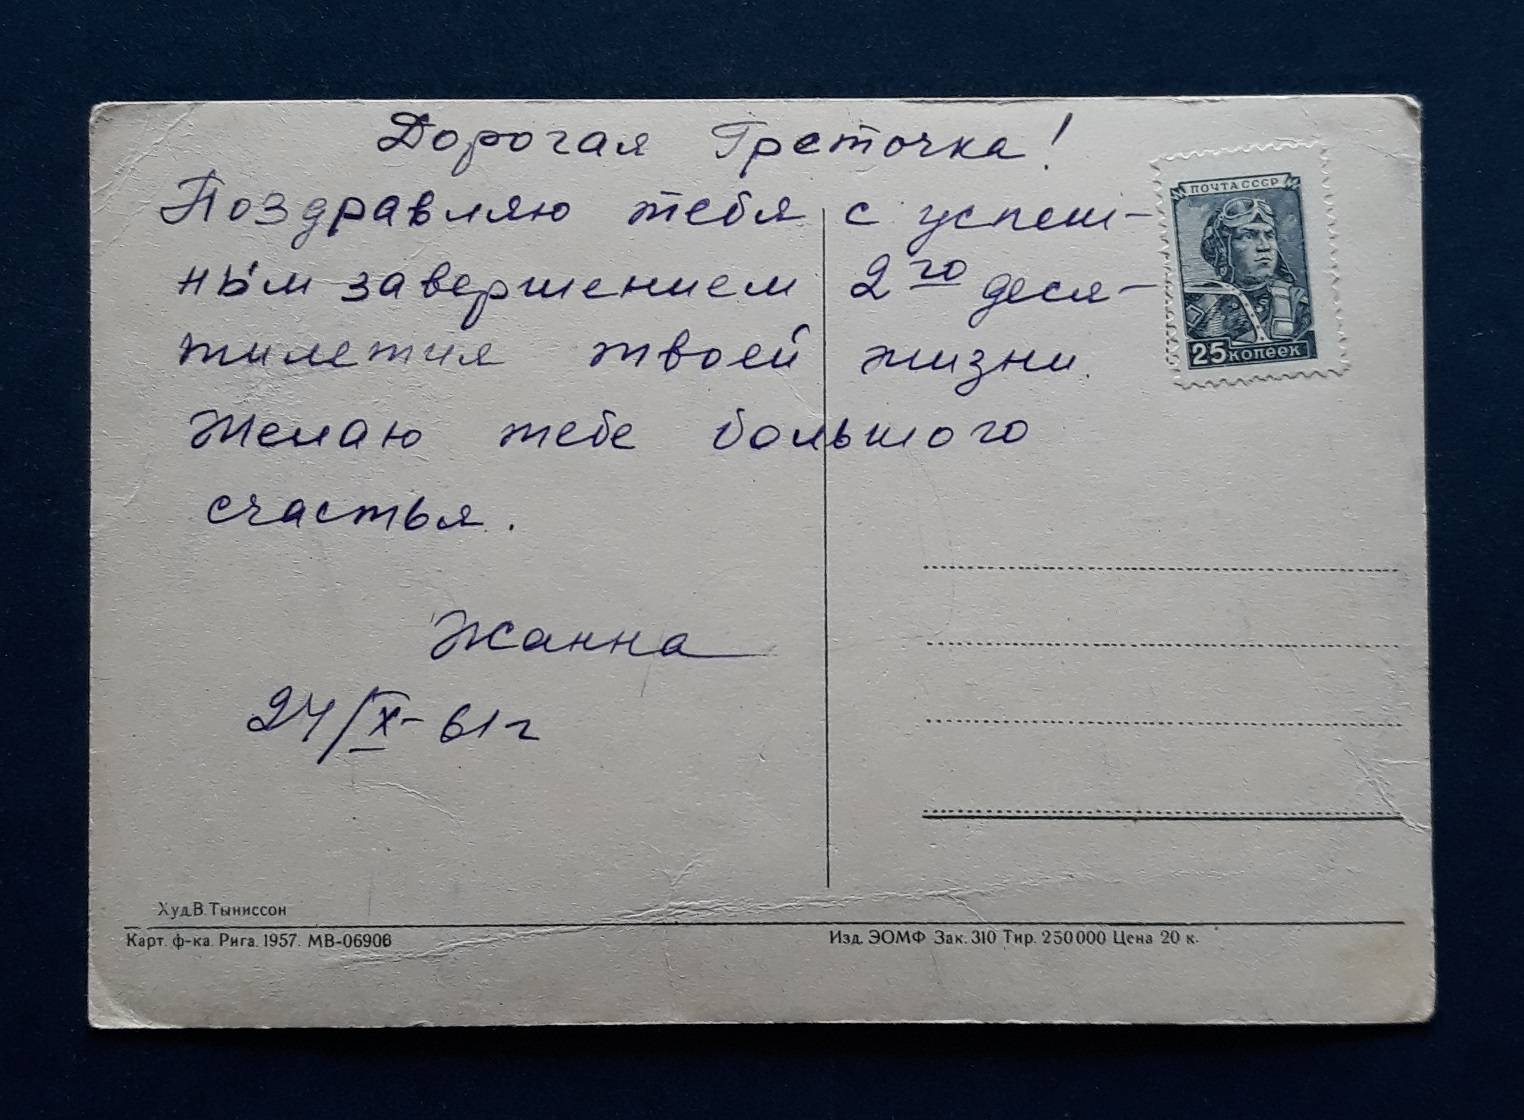 Дорогая Греточка!
Поздравляю тебя с успеш-
ным завершением 2го деся-
тилетия твоей жизни.
Желаю тебе большого
счастья.
Жанна
24/IX-61г
ПОЧТА СССР
25 КОПЕЕК
Худ.В.Тыниссон
Карт. ф-ка. Рига. 1957. МВ-06906
Изд. ЭОМФ Зак. 310 Тир. 250000 Цена 20 к.